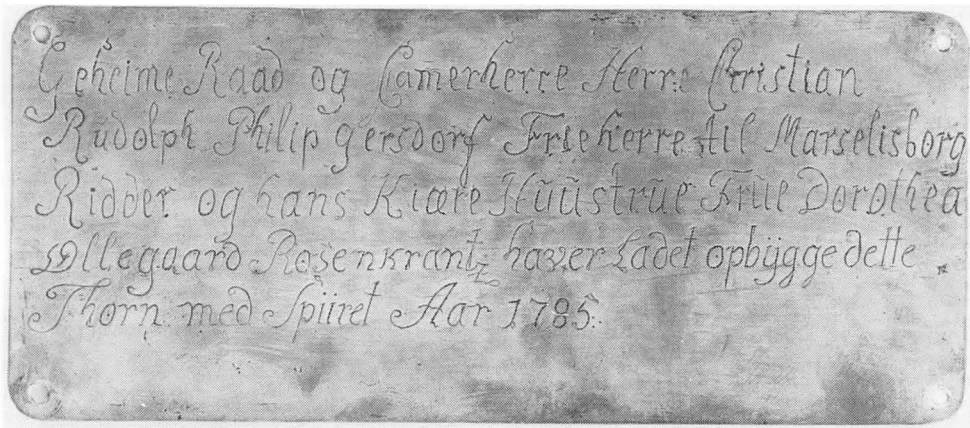 Geheime Raad og Camerherre Herre Christian
Rudolph Philip gersdorf Frieherre til Marselisborg
Ridder og hans Kiære Huustrue Frue Dorothea
Øllegaard Rosenkrantz haver Ladet opbÿgge dette
Thorn med Spiiret Aar 1785.